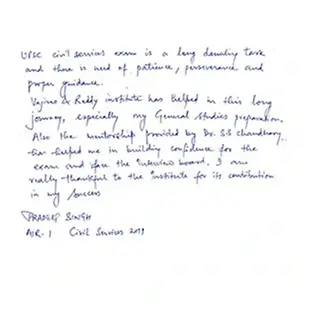 UPSC civil services exam is a long demanding task
and there is need of patience, perseverance and
proper guidance.
Vajiram & Reddy institute has helped in this long
journey, especially my General Studies preparation.
Also the mentorship provided by Dr. S.S chaudhary
has helped me in building confidence for the
exam and face the Interview board. I am
really thankful to the Institute for its contribution
in my success
PRADEEP SINGH
AIR-1 Civil Services 2019